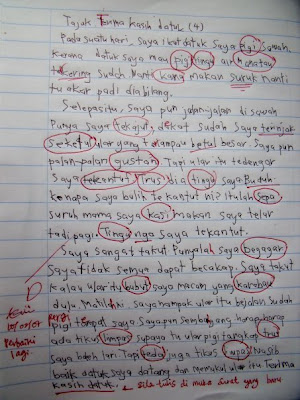 Tajak Terima kasih datuk (4)
Pada suatu hari, saya ikut datuk saya Pigi sawah.
kerana datuk saya mau pigi kringi air. Kanatan
tekering sudah nanti kami makan suruk nanti
tu akar padi dia bilang.
Selepas itu, saya pun jalan-jalan di sawah
Punya saya terajut, dekat sudah saya terpijak
seketul ular yang teramau betul besar. Saya pun
palan-palan gustan. Tapi ular itu tedengar
saya tekentut. Trus dia tinga saya. Bubuh
kenapa saya bulih tekentut ni? Itulah sepa
suruh mama saya kasi makan saya telur
tadi pagi. Tingu nga saya tekentut.
Saya sangat takut Punyalah saya begagar
Saya tidak semua dapat becakap. Saya takut
kalau ular itu bubut saya macam yang karabau
dulu. Matilah ni. Saya nampak ular itu bejalan sudah
pigi tempat saya. Saya pun sembayang harap-harap
ada tikus limpas supaya tu ular pigi tangkap Trus
saya buleh lari. Tapi teda juga tikus lupas. Nasib
baik datuk saya datang dan memukul ular itu. Terima
kasih datuk.
Evi
10/02/09
Perbaiki
lagi.
* sila tulis di muka surat yang baru.